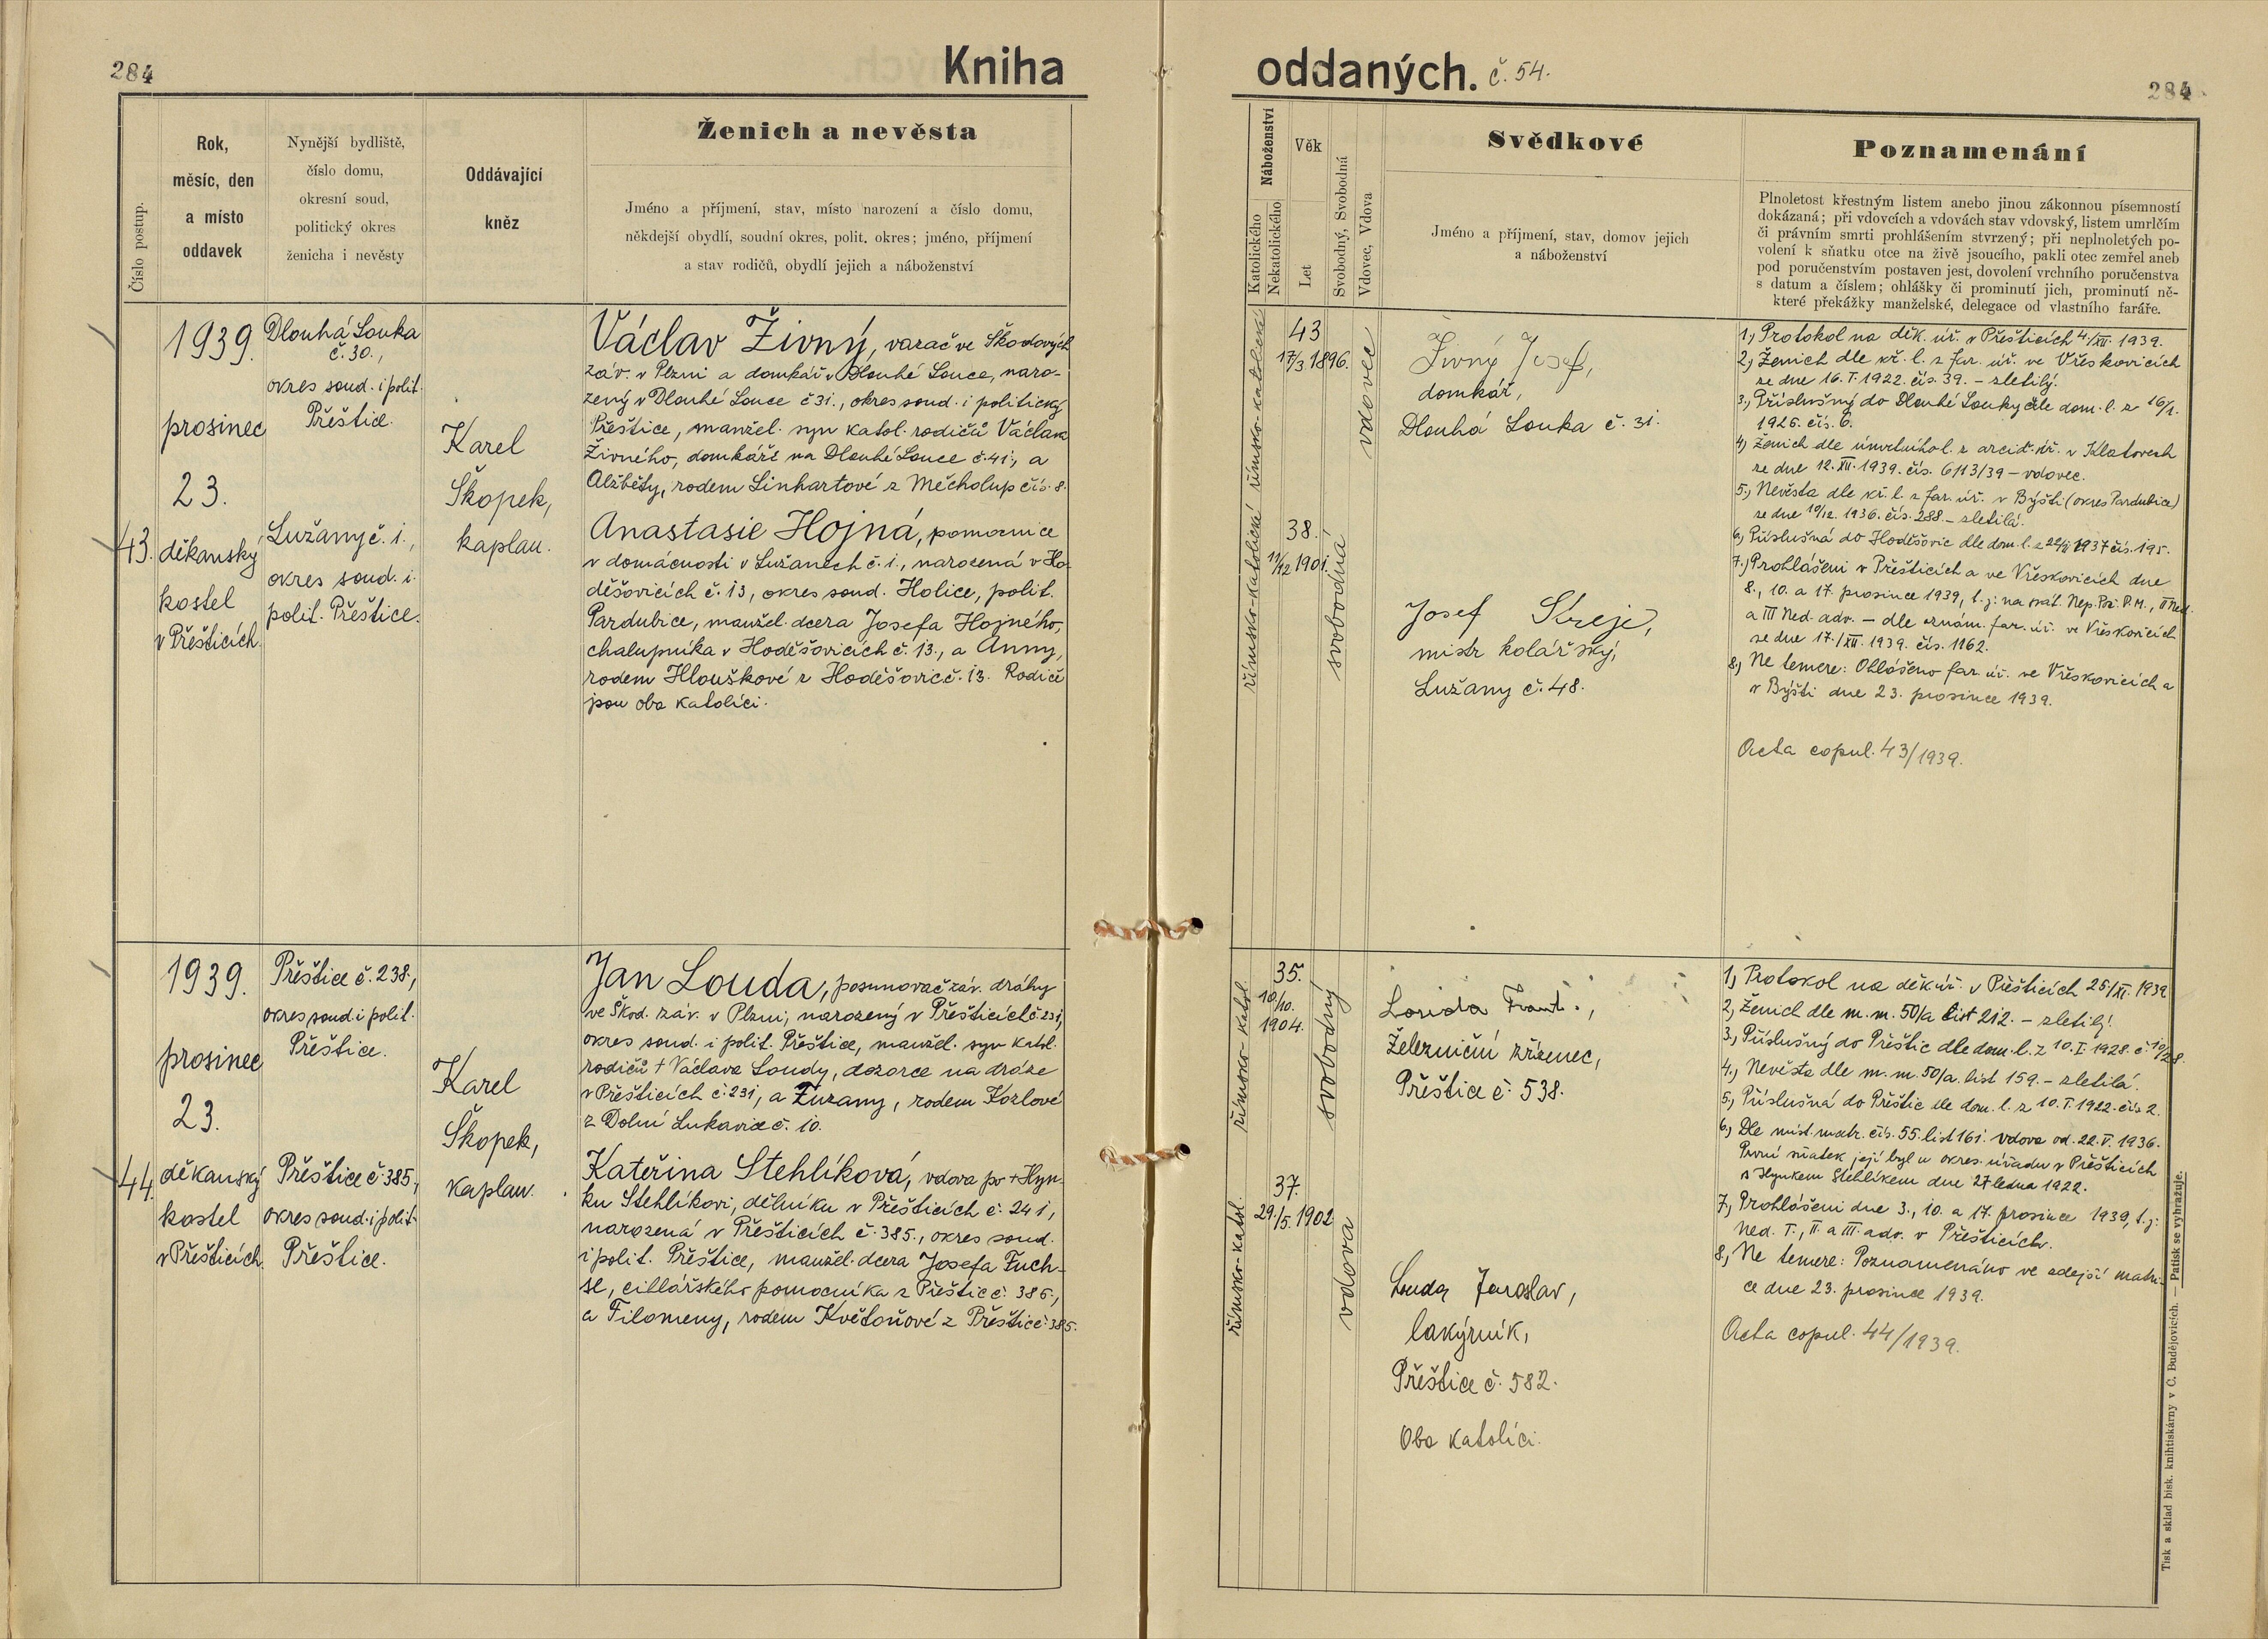 284
Kniha
oddaných. č. 54.
284
Číslo postup.
Rok,
měsíc, den
a místo
oddavek
Nynější bydliště,
číslo domu,
okresní soud,
politický okres
ženicha i nevěsty
Oddávající
kněz
Ženich a nevěsta
Jméno a příjmení, stav, místo narození a číslo domu,
někdejší obydlí, soudní okres, polit. okres; jméno, příjmení
a stav rodičů, obydlí jejich a náboženství
Náboženství
Katolického
Nekatolického
Věk
Let
Svobodný, Svobodná
Vdovec, Vdova
Svědkové
Jméno a příjmení, stav, domov jejich
a náboženství
Poznamenání
Plnoletost křestným listem anebo jinou zákonnou písemností
dokázaná; při vdovcích a vdovách stav vdovský, listem umrlčím
či právním smrti prohlášením stvrzený; při neplnoletých po-
volení k sňatku otce na živě jsoucího, pakli otec zemřel aneb
pod poručenstvím postaven jest, dovolení vrchního poručenstva
s datum a číslem; ohlášky či prominutí jich, prominutí ně-
které překážky manželské, delegace od vlastního faráře.
43.
1939.
prosinec
23.
děkanský
kostel
v Přešticích.
Dlouhá Louka
č. 30.,
okres soud. i polit.
Přeštice.
Lužany č. 1.,
okres soud. i.
polit. Přeštice.
Karel
Skopek,
kaplan.
Václav Živný, vazač ve Škodových
záv. v Plzni a domkář v Dlouhé Louce, naro-
zený v Dlouhé Louce č 31., okres soud. i politický
Přeštice, manžel. syn katol. rodičů Václava
Živného, domkáře na Dlouhé Louce č. 41., a
Alžběty, rodem Linhartové z Měcholup čís. 8.
Anastasie Hojná, pomocnice
v domácnosti v Lužanech č. 1., narozená v Ho-
děšovicích č. 13, okres soud. Holice, polit.
Pardubice, manžel. dcera Josefa Hojného,
chalupníka v Hoděšovicích č. 13., a Anny,
rodem Hlouškové z Hoděšovic č. 13. Rodiče
jsou oba katolíci.
římsko-katolické
43
17/3 1896.
vdovec
římsko-katolické
38.
11/12 1901.
svobodná
Živný Josef,
domkář,
Dlouhá Louka č. 31.
Josef Skreje,
mistr kolářský,
Lužany č. 48.
1., Protokol na děk. úř. v Přešticích 4./XII. 1939.
2., Ženich dle kř. l. z far. úř. ve Vřeskovicích
ze dne 16. I. 1922. čís. 39. - zletilý.
3., Příslušný do Dlouhé Louky dle dom. l. z 16/1.
1926. čís. 6.
4., Ženich dle úmrtního l. z arcid. úř. v Klatovech
ze dne 12. XII. 1939. čís. 6113/39 - vdovec.
5., Nevěsta dle kř. l. z far. úř. v Býšti (okres Pardubice)
ze dne 10/12. 1936. čís. 288. - zletilá.
6., Příslušná do Hoděšovic dle dom. l. z 22/2 1937 čís. 195.
7., Prohlášeni v Přešticích a ve Vřeskovicích dne
8., 10. a 17. prosince 1939, t. j. na svát. Nep. Poč. P. M., II Ned.
a III Ned. adv. - dle oznám. far. úř. ve Vřeskovicích
ze dne 17./XII. 1939. čís. 1162.
8., Ne temere: Ohlášeno far. úř. ve Vřeskovicích a
v Býšti dne 23. prosince 1939.
Acta copul. 43/1939.
44.
1939.
prosinec
23.
děkanský
kostel
v Přešticích.
Přeštice č. 238.,
okres soud. i polit.
Přeštice.
Přeštice č. 385.,
okres soud. i polit.
Přeštice.
Karel
Skopek,
kaplan.
Jan Louda, posunovač záv. dráhy
ve Škod. záv. v Plzni, narozený v Přešticích č 231,
okres soud. i polit. Přeštice, manžel. syn katol.
rodičů + Václava Loudy, dozorce na dráze
v Přešticích č. 231, a Zuzany, rodem Kozlové
z Dolní Lukavice č. 10.
Kateřina Stehlíková, vdova po + Hyn-
ku Stehlíkovi, dělníku v Přešticích č. 241,
narozená v Přešticích č. 385., okres soud.
i polit. Přeštice, manžel. dcera Josefa Fuch-
se, cihlářského pomocníka z Přeštic č. 385.,
a Filomeny, rodem Květoňové z Přeštic č. 385.
římsko-katol.
35.
10./10.
1904.
svobodný
římsko-katol.
37.
29./5. 1902
vdova
Louda Frant.,
Železniční zřízenec,
Přeštice č. 538.
Louda Jaroslav,
lakýrník,
Přeštice č. 582.
Oba katolíci.
1., Protokol na děk. úř. v Přešticích 25/XI. 1939
2., Ženich dle m. m. 50/a list 212. - zletilý.
3., Příslušný do Přeštic dle dom. l. z 10. I. 1928. č. 10/28.
4., Nevěsta dle m. m. 50/a. list 159. - zletilá.
5., Příslušná do Přeštic dle dom. l. z 10. I. 1922. čís 2.
6., Dle míst. matr. čís. 55. list 161. vdova od. 22. V. 1936.
První sňatek její byl u okres. úřadu v Přešticích
s Hynkem Stehlíkem dne 27 ledna 1922.
7., Prohlášeni dne 3., 10. a 17. prosince 1939, t. j.
Ned. I., II. a III. adv. v Přešticích.
8., Ne temere: Poznamenáno ve zdejší matri-
ce dne 23. prosince 1939.
Acta copul. 44/1939.
Tisk a sklad bisk. knihtiskárny v Č. Budějovicích. — Patisk se vyhražuje.